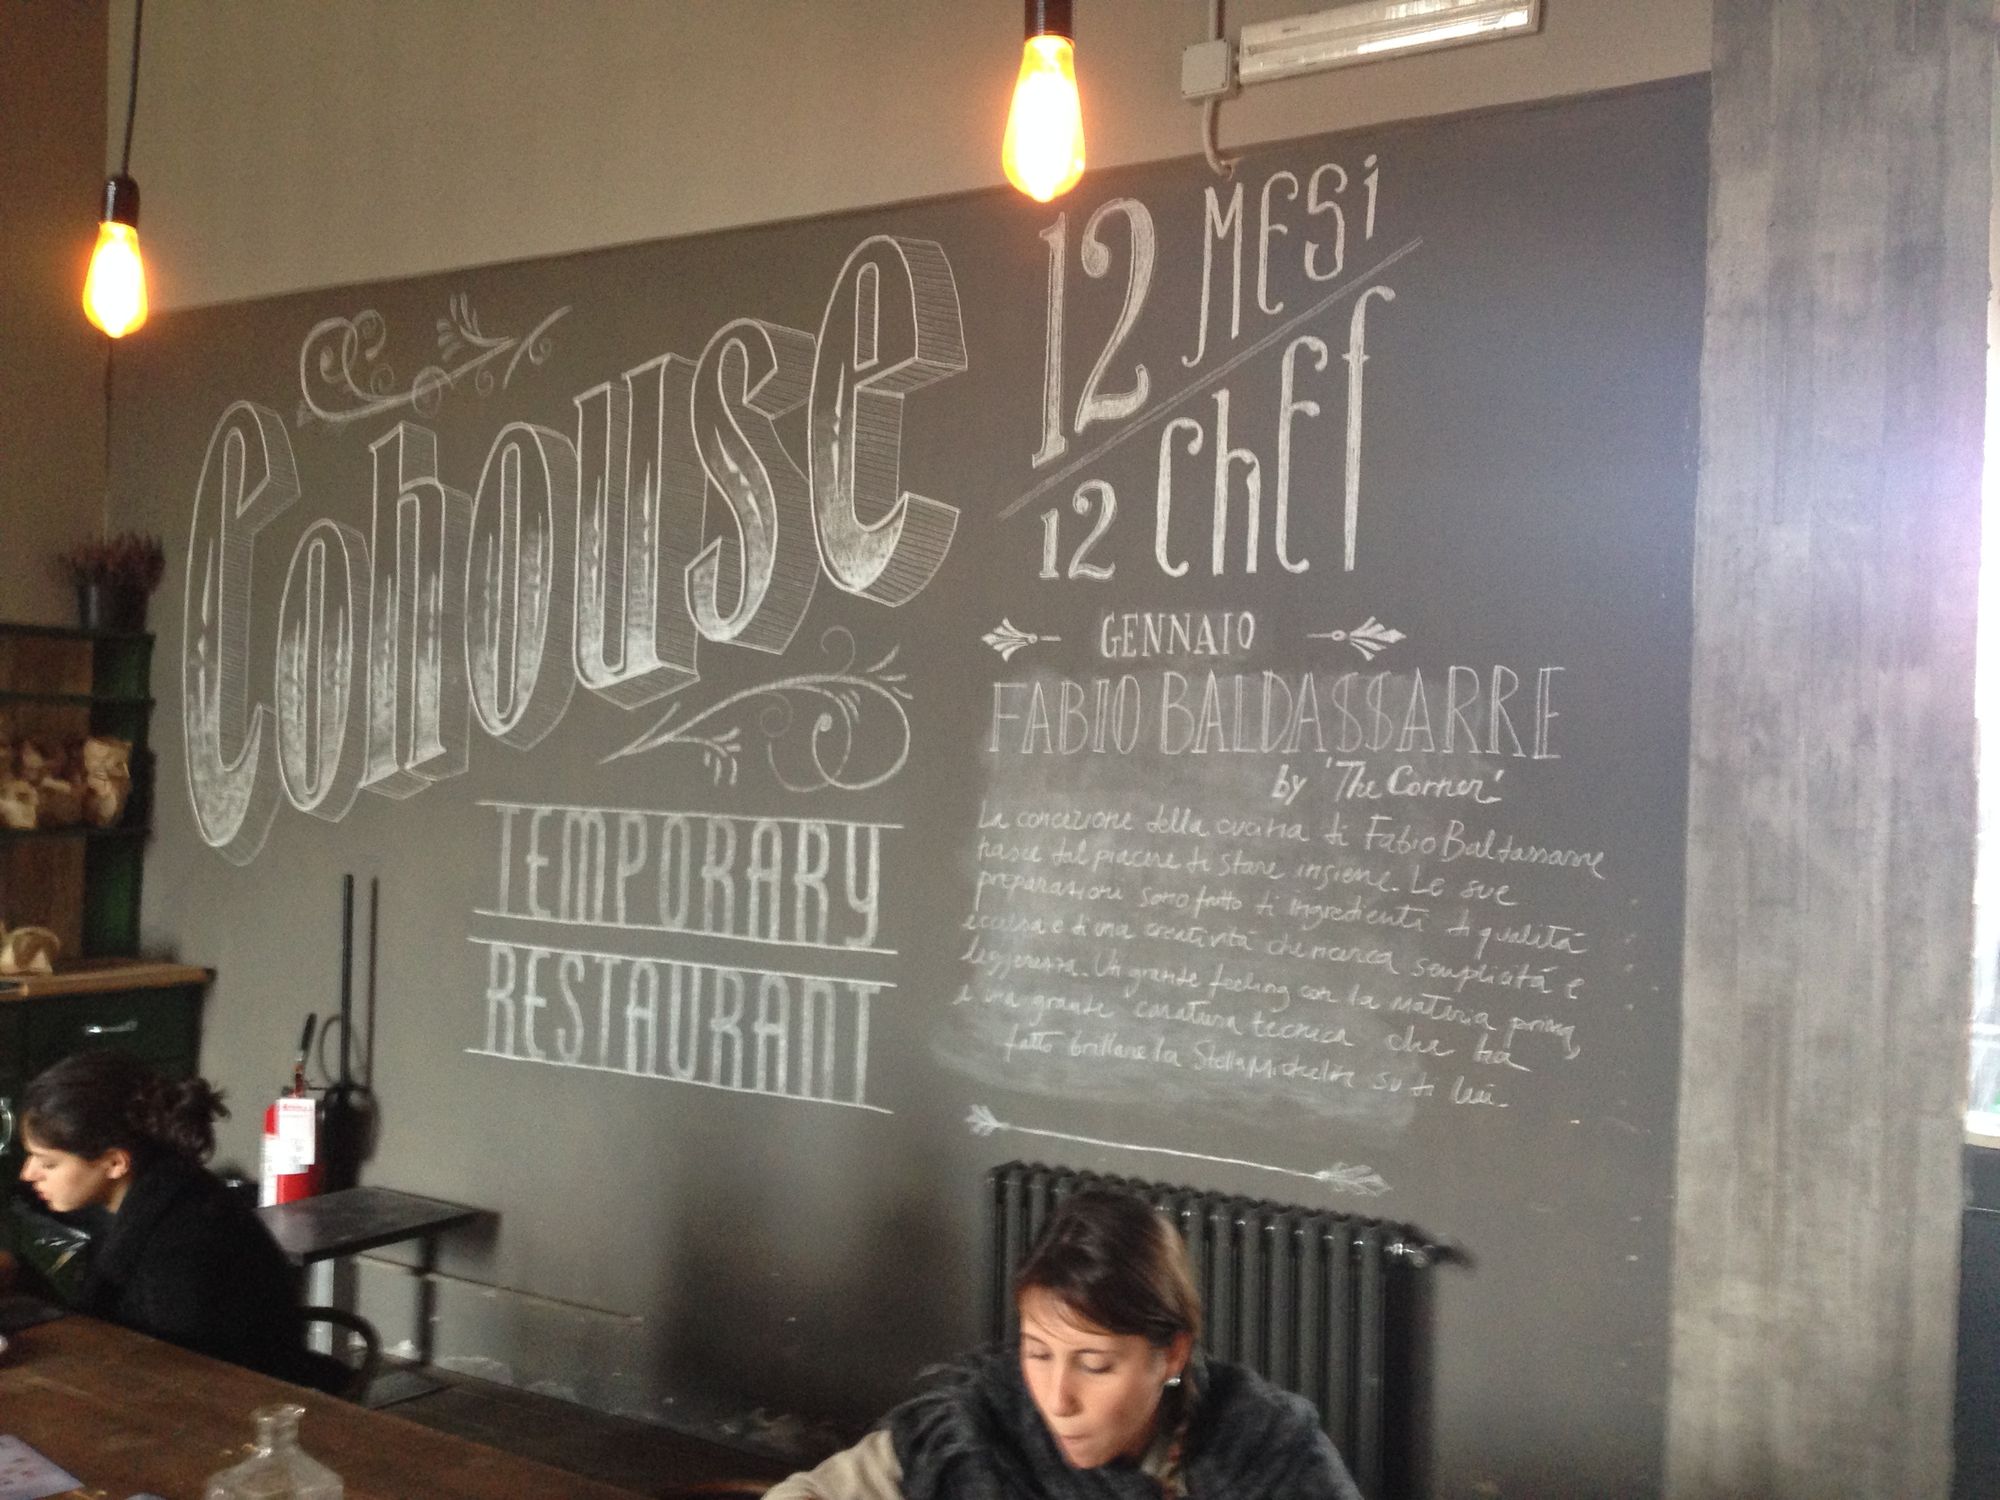 Cohouse
TEMPORARY
RESTAURANT
12 MESi
12 chEf
GENNAIO
FABIO BALDASSARRE
by 'The Corner'
La concezione della cucina di Fabio Baldassarre
nasce dal piacere di stare insieme. Le sue
preparazioni sono frutto di ingredienti di qualità
eccelsa e di una creatività che marca semplicità e
leggerezza. Un grande feeling con la materia prima,
e una grande caratura tecnica che ha
fatto brillare la Stella Michelin su di lui.